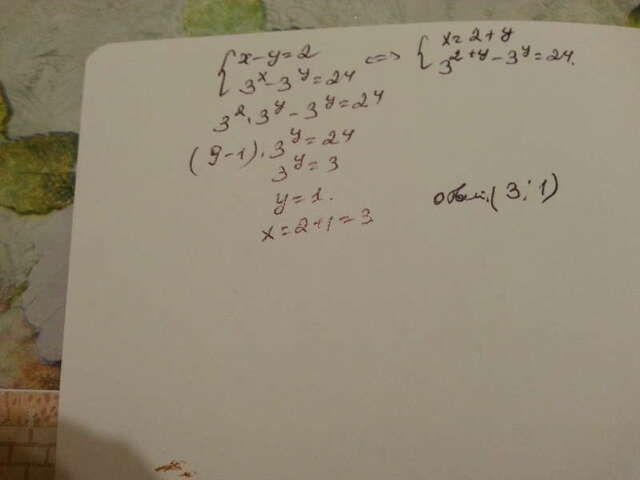 { x-y=2 <=> { x=2+y
3^x-3^y=24 3^{2+y}-3^y=24.
3^2·3^y-3^y=24
(9-1)·3^y=24
3^y=3
y=1.
x=2+1=3 (3;1)